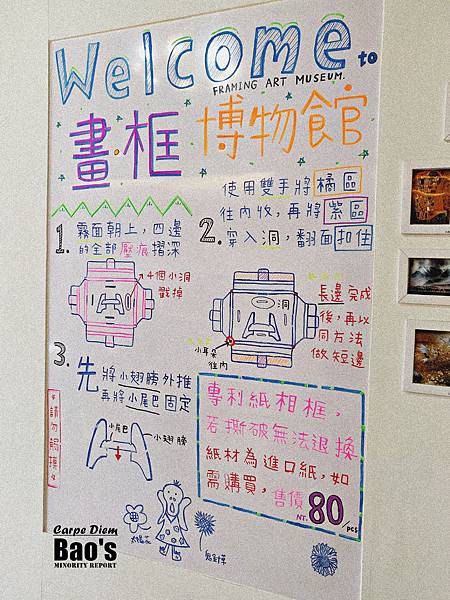 Welcome to
FRAMING ART MUSEUM.
畫·框 博物館
1. 霧面朝上，四邊
的全部壓痕摺深
4個小洞
戳掉
2. 使用雙手將橘區
往內收，再將紫區
穿入洞，翻面扣住
洞
小耳朵
往內
長邊完成
後，再以
同方法
做短邊
3. 先將小翅膀外推
再將小尾巴固定
小尾巴
小翅膀
請勿觸摸
專利紙相框，
若撕破無法退換
紙材為進口紙，如
需購買，售價
NT. 80 /PCS
太陽花
Carpe Diem
Bao's
MINORITY REPORT